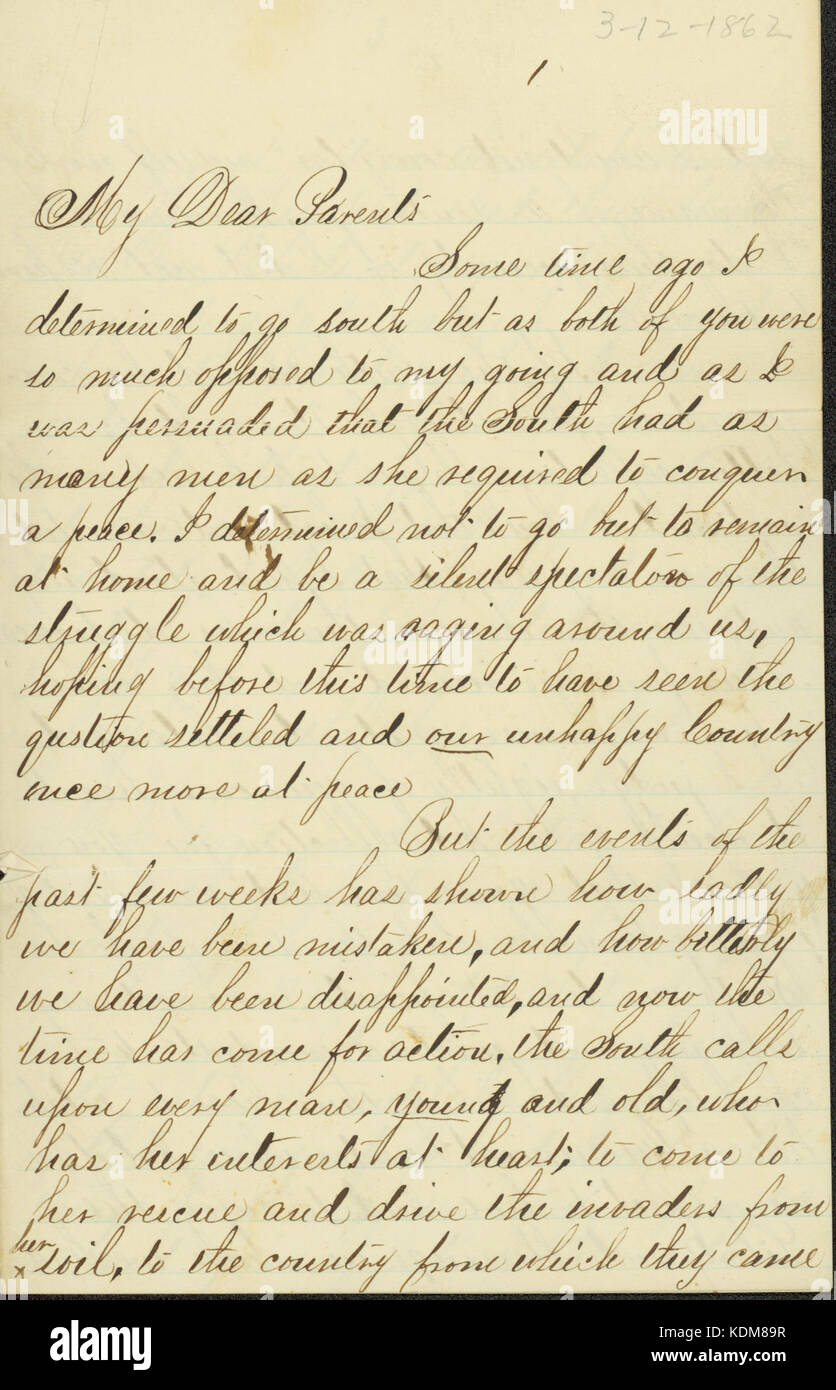 3-12-1862
1
My Dear Parents
Some time ago I
determined to go south but as both of you were
so much opposed to my going and as I
was persuaded that the South had as
many men as she required to conquer
a peace. I determined not to go but to remain
at home and be a silent spectator of the
struggle which was raging around us,
hoping before this time to have seen the
qustion setteled and our unhappy Country
once more at peace
But the events of the
past few weeks has shown how sadly
we have been mistaken, and how bitterly
we have been disappointed, and now the
time has come for action, the South calls
upon every man, young and old, who
has her interests at heart; to come to
her rescue and drive the invaders from
her
x soil, to the country from which they came
alamy
Image ID: KDM89R
www.alamy.com